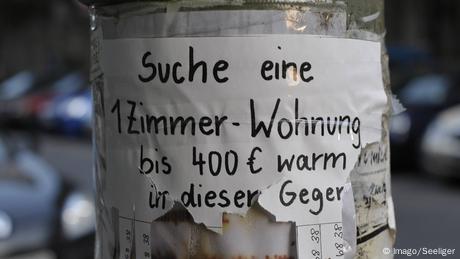 Suche eine
1 Zimmer-Wohnung
bis 400 € warm
in dieser Gegen
© Imago/Seeliger